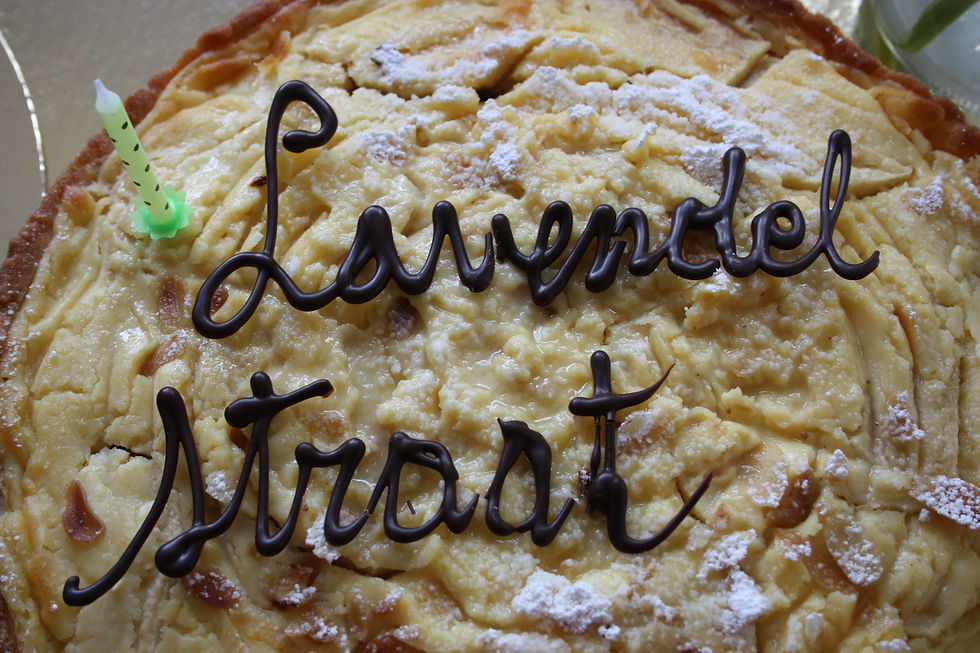 Lavendel
Straat